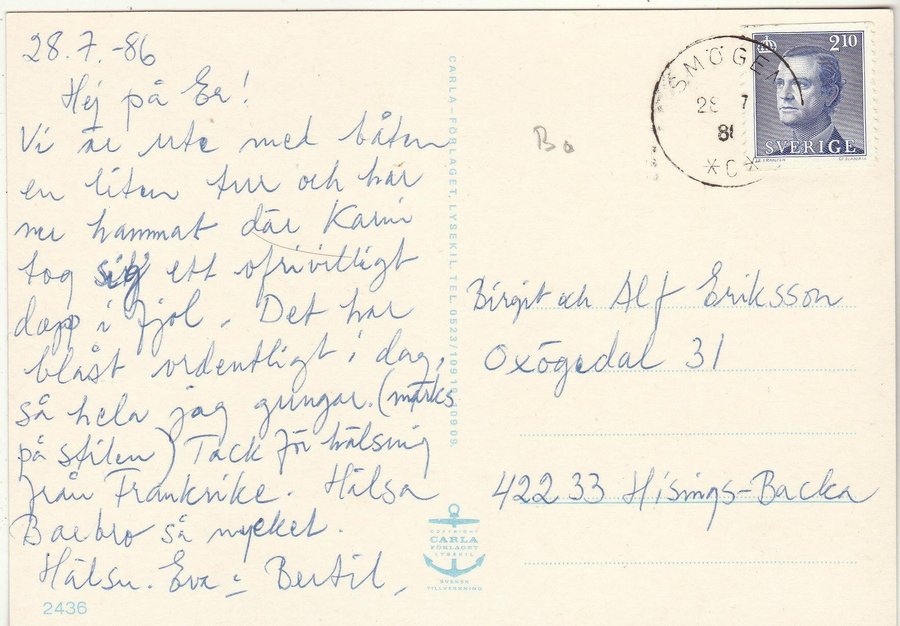 28.7.-86
Hej på Er!
Vi är ute med båten
en liten tur och har
nu hamnat där Karin
tog sig ett ofrivilligt
dopp i fjol. Det har
blåst ordentligt i dag,
så hela jag gungar. (märks
på stilen) Tack för hälsning
från Frankrike. Hälsa
Barbro så mycket.
Hälsn. Eva o Bertil,
2436
CARLA-FÖRLAGET, LYSEKIL TEL. 0523/109 10, 109 09.
COPYRIGHT
CARLA
FÖRLAGET
LYSEKIL
SVENSK
TILLVERKNING
Bo
SMÖGEN
28 7
86
*C*
2.10
SVERIGE
Birgit och Alf Eriksson
Oxögedal 31
422 33 Hisings-Backa